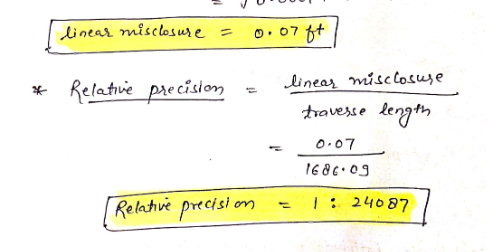 linear misclosure = 0.07 ft
* Relative precision = linear misclosure
traverse length
= 0.07
1686.09
Relative precision = 1 : 24087